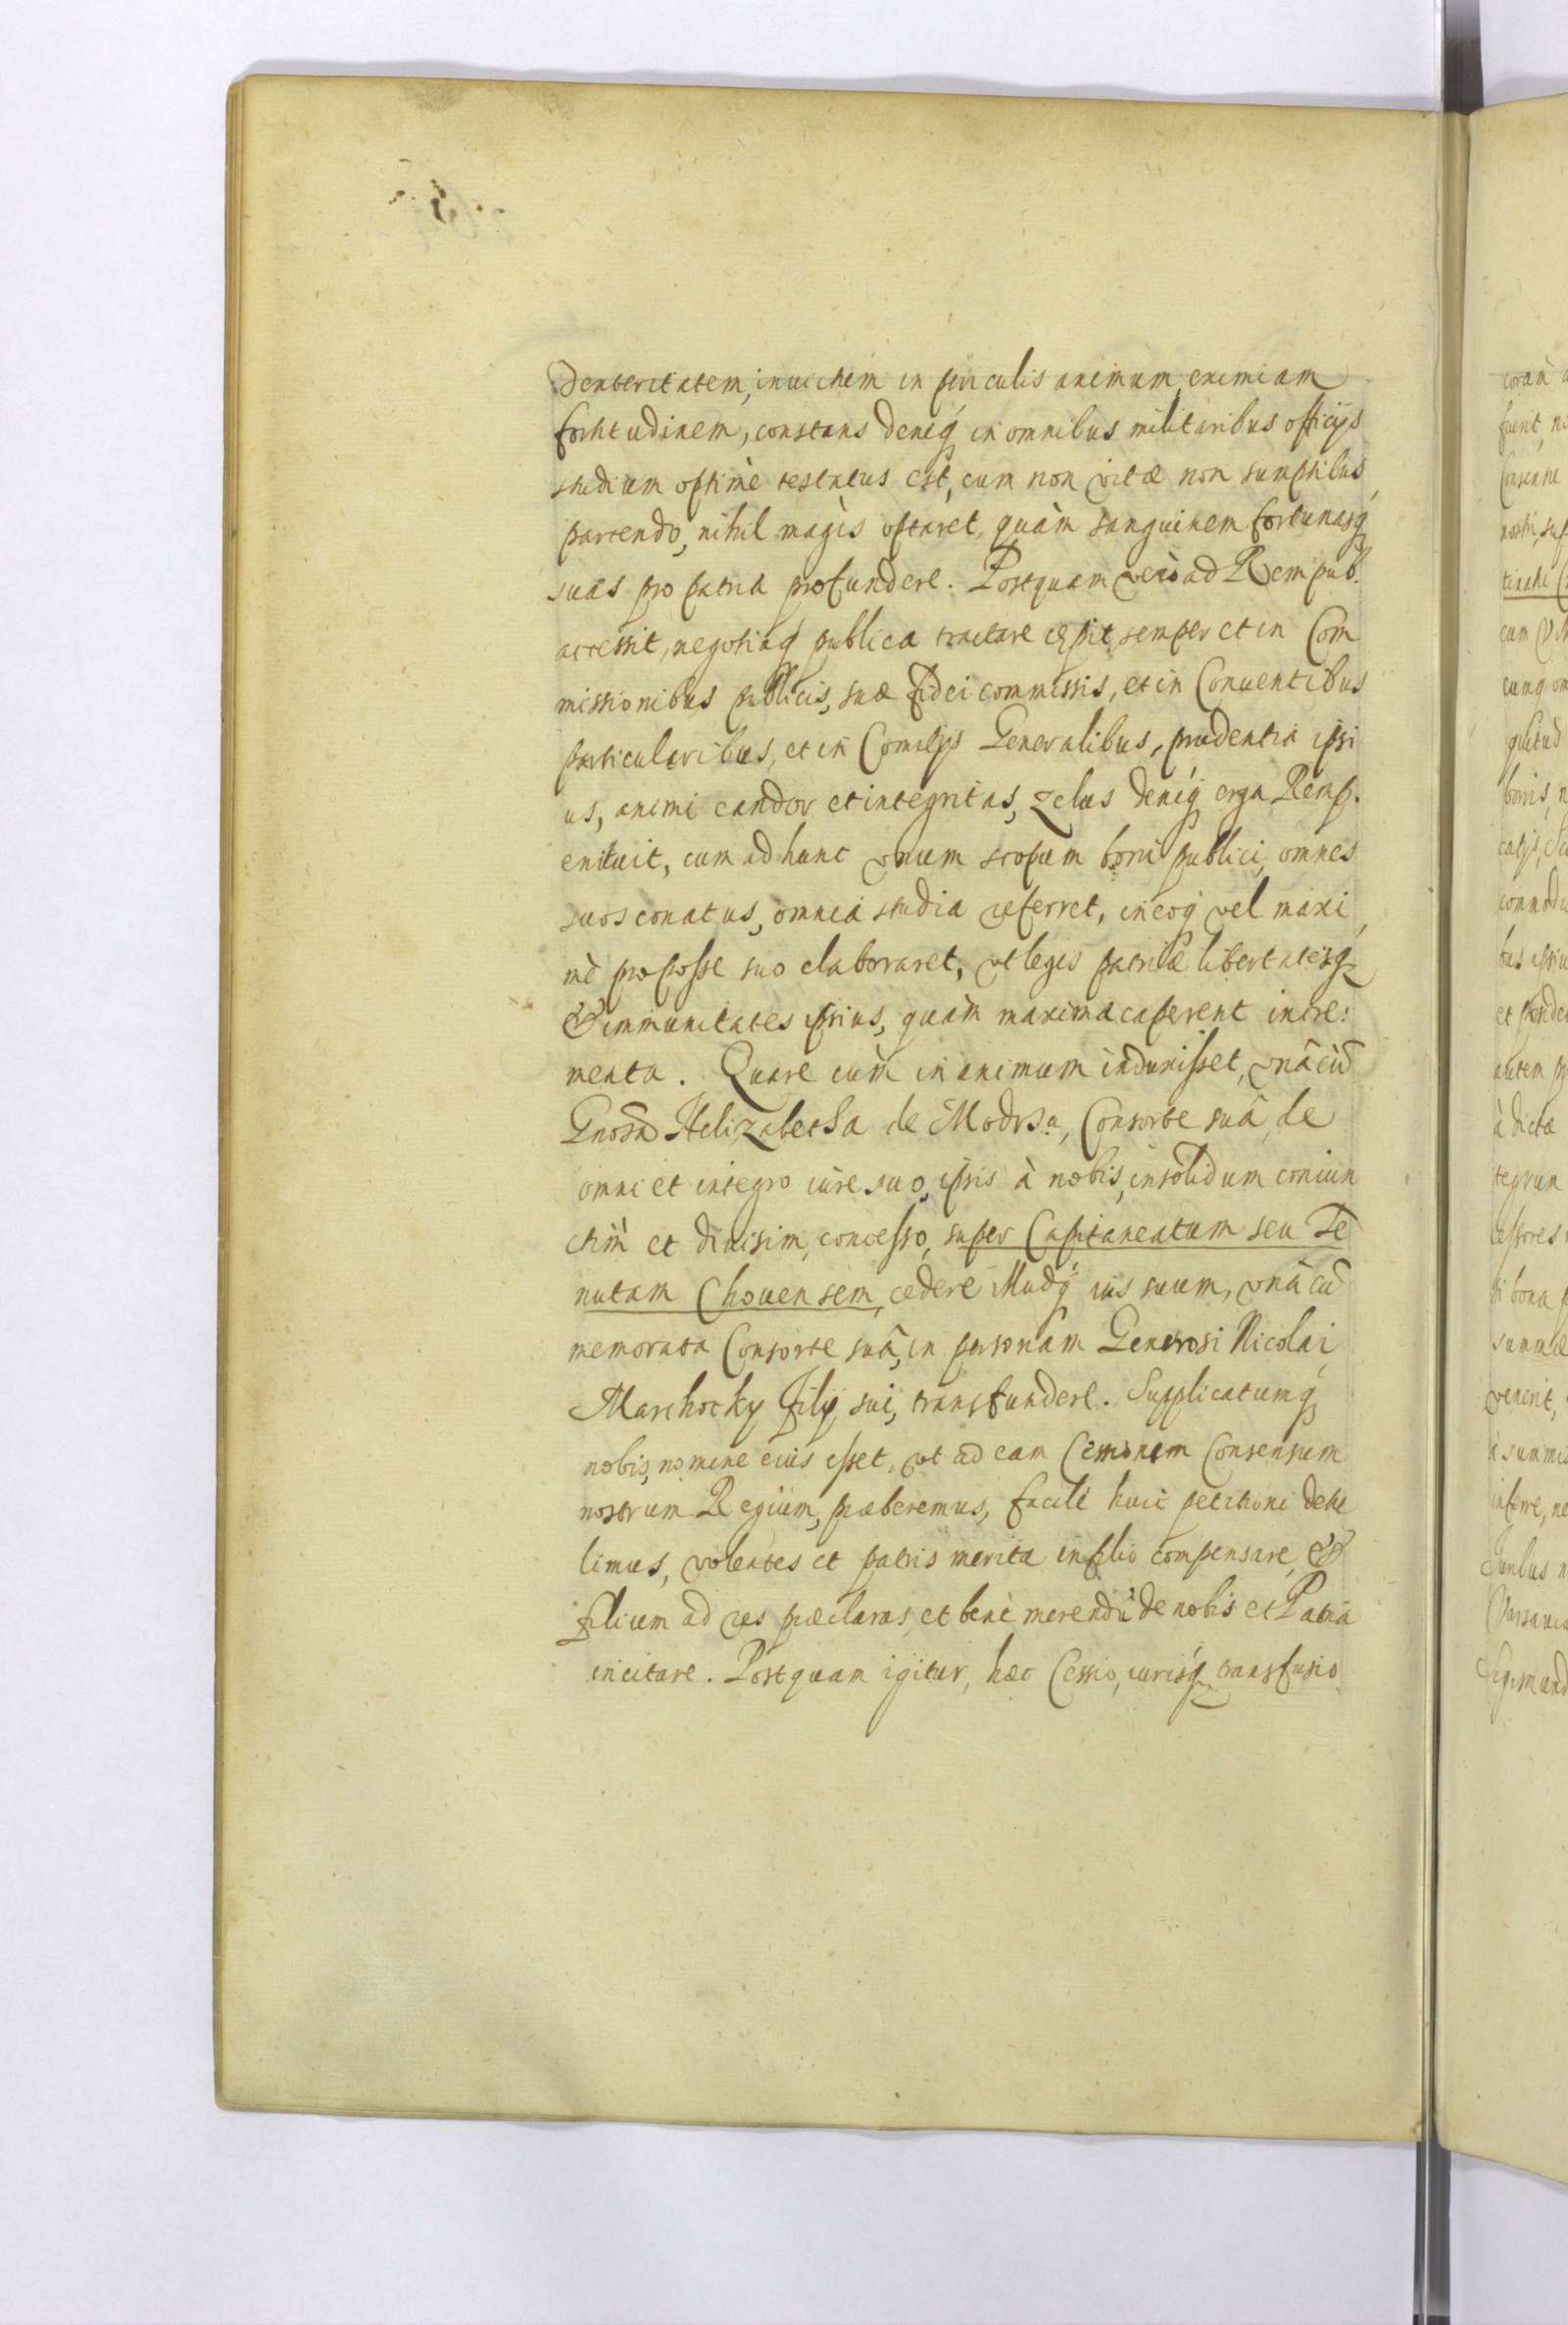 dexteritatem, inuictum in periculis animum, eximiam
fortitudinem, constans deniq́ in omnibus militaribus officijs
studium optimè testatus est, cum non vitæ non sumptibus
parcendo, nihil magìs optaret, quàm sanguinem fortunasq́
suas pro patria profundere. Postquam verò ad Rempub.
accessit, negotiaq́ publica tractare cæpit, semper et in Com
missionibus publicis, suæ fidei commissis, et in Conuentibus
particularibus, et in Comitijs Generalibus, prudentia ipsi
us, animi candor et integritas, zelus deniq́ erga Remp.
enituit, cum ad hunc vnum scopum boni publici, omnes
suos conatus, omnia studia referret, in eoq́ vel maxi
mè pro posse suo elaboraret, vt leges patriæ libertatesq́
& immunitates ipsius, quàm maxima caperent incre:
menta. Quare cùm in animum induxisset, vnà cū
Gnosa Helizabetha de Modrza, Consorte suâ, de
omni et integro iure suo, ipsis à nobis, insolidum coniun
ctìm et diuisim, concesso, super Capitaneatum seu Te
nutam Chouensem, cedere illudq́ ius suum, vnà cū
memorata Consorte suâ, in personam Generosi Nicolai
Marchocky filij sui, transfundere. Supplicatumq́
nobis, nomine eius esset, vt ad eam Cessionem Consensum
nostrum Regium, præberemus, facilè huic petitioni
limus, volentes et patris merita in filio compensare, &
filium ad res præclaras, et benè merendū de nobis et Patria
incitare. Postquam igitur, hæc Cessio, iurisq́ transfusio